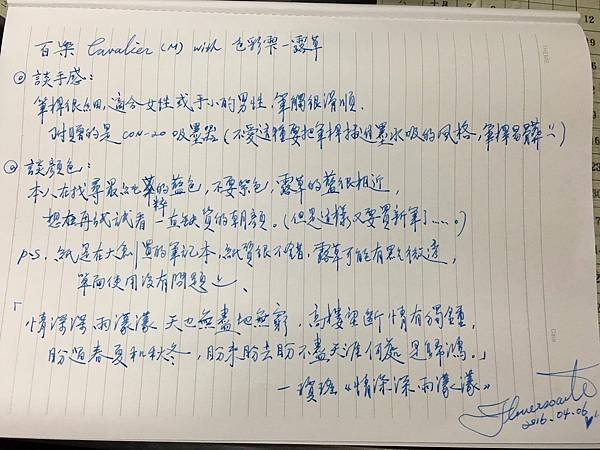 百樂 Cavalier (M) with 色彩雫-露草
◎ 談手感:
筆桿很細,適合女性或手小的男性,筆觸很滑順.
附贈的是 CON-20 吸墨器(不愛這種要把筆桿插進墨水吸的風格,筆桿易髒
◎ 談顏色:
本人在找尋最純粹的藍色,不要紫色,露草的藍很相近,
想在再試試看一直缺貨的朝顏。(但是這樣又要買新筆了......)
p.s. 紙是在大創買的筆記本,紙質很不錯,露草可能有點微透,
單面使用沒有問題
「情深深雨濛濛 天也無盡地無窮,高樓望斷 情有獨鍾,
盼過春夏和秋冬,盼來盼去盼不盡 天涯何處是歸鴻。」
— 瓊瑤《情深深雨濛濛》
2016.04.06
THEME
Date